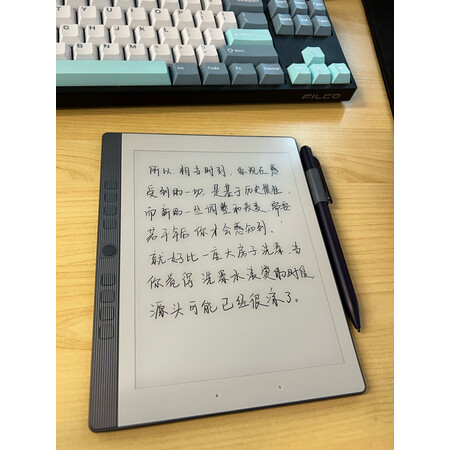 FILCO
所以,相当时刻,你现在感
受到的一切,是基于历史惯性,
而新的一些调整和改变,
若干年后你才会感知到.
就好比一座大房子洗澡,当
你觉得洗澡水的时候
源头可能已经很凉了。